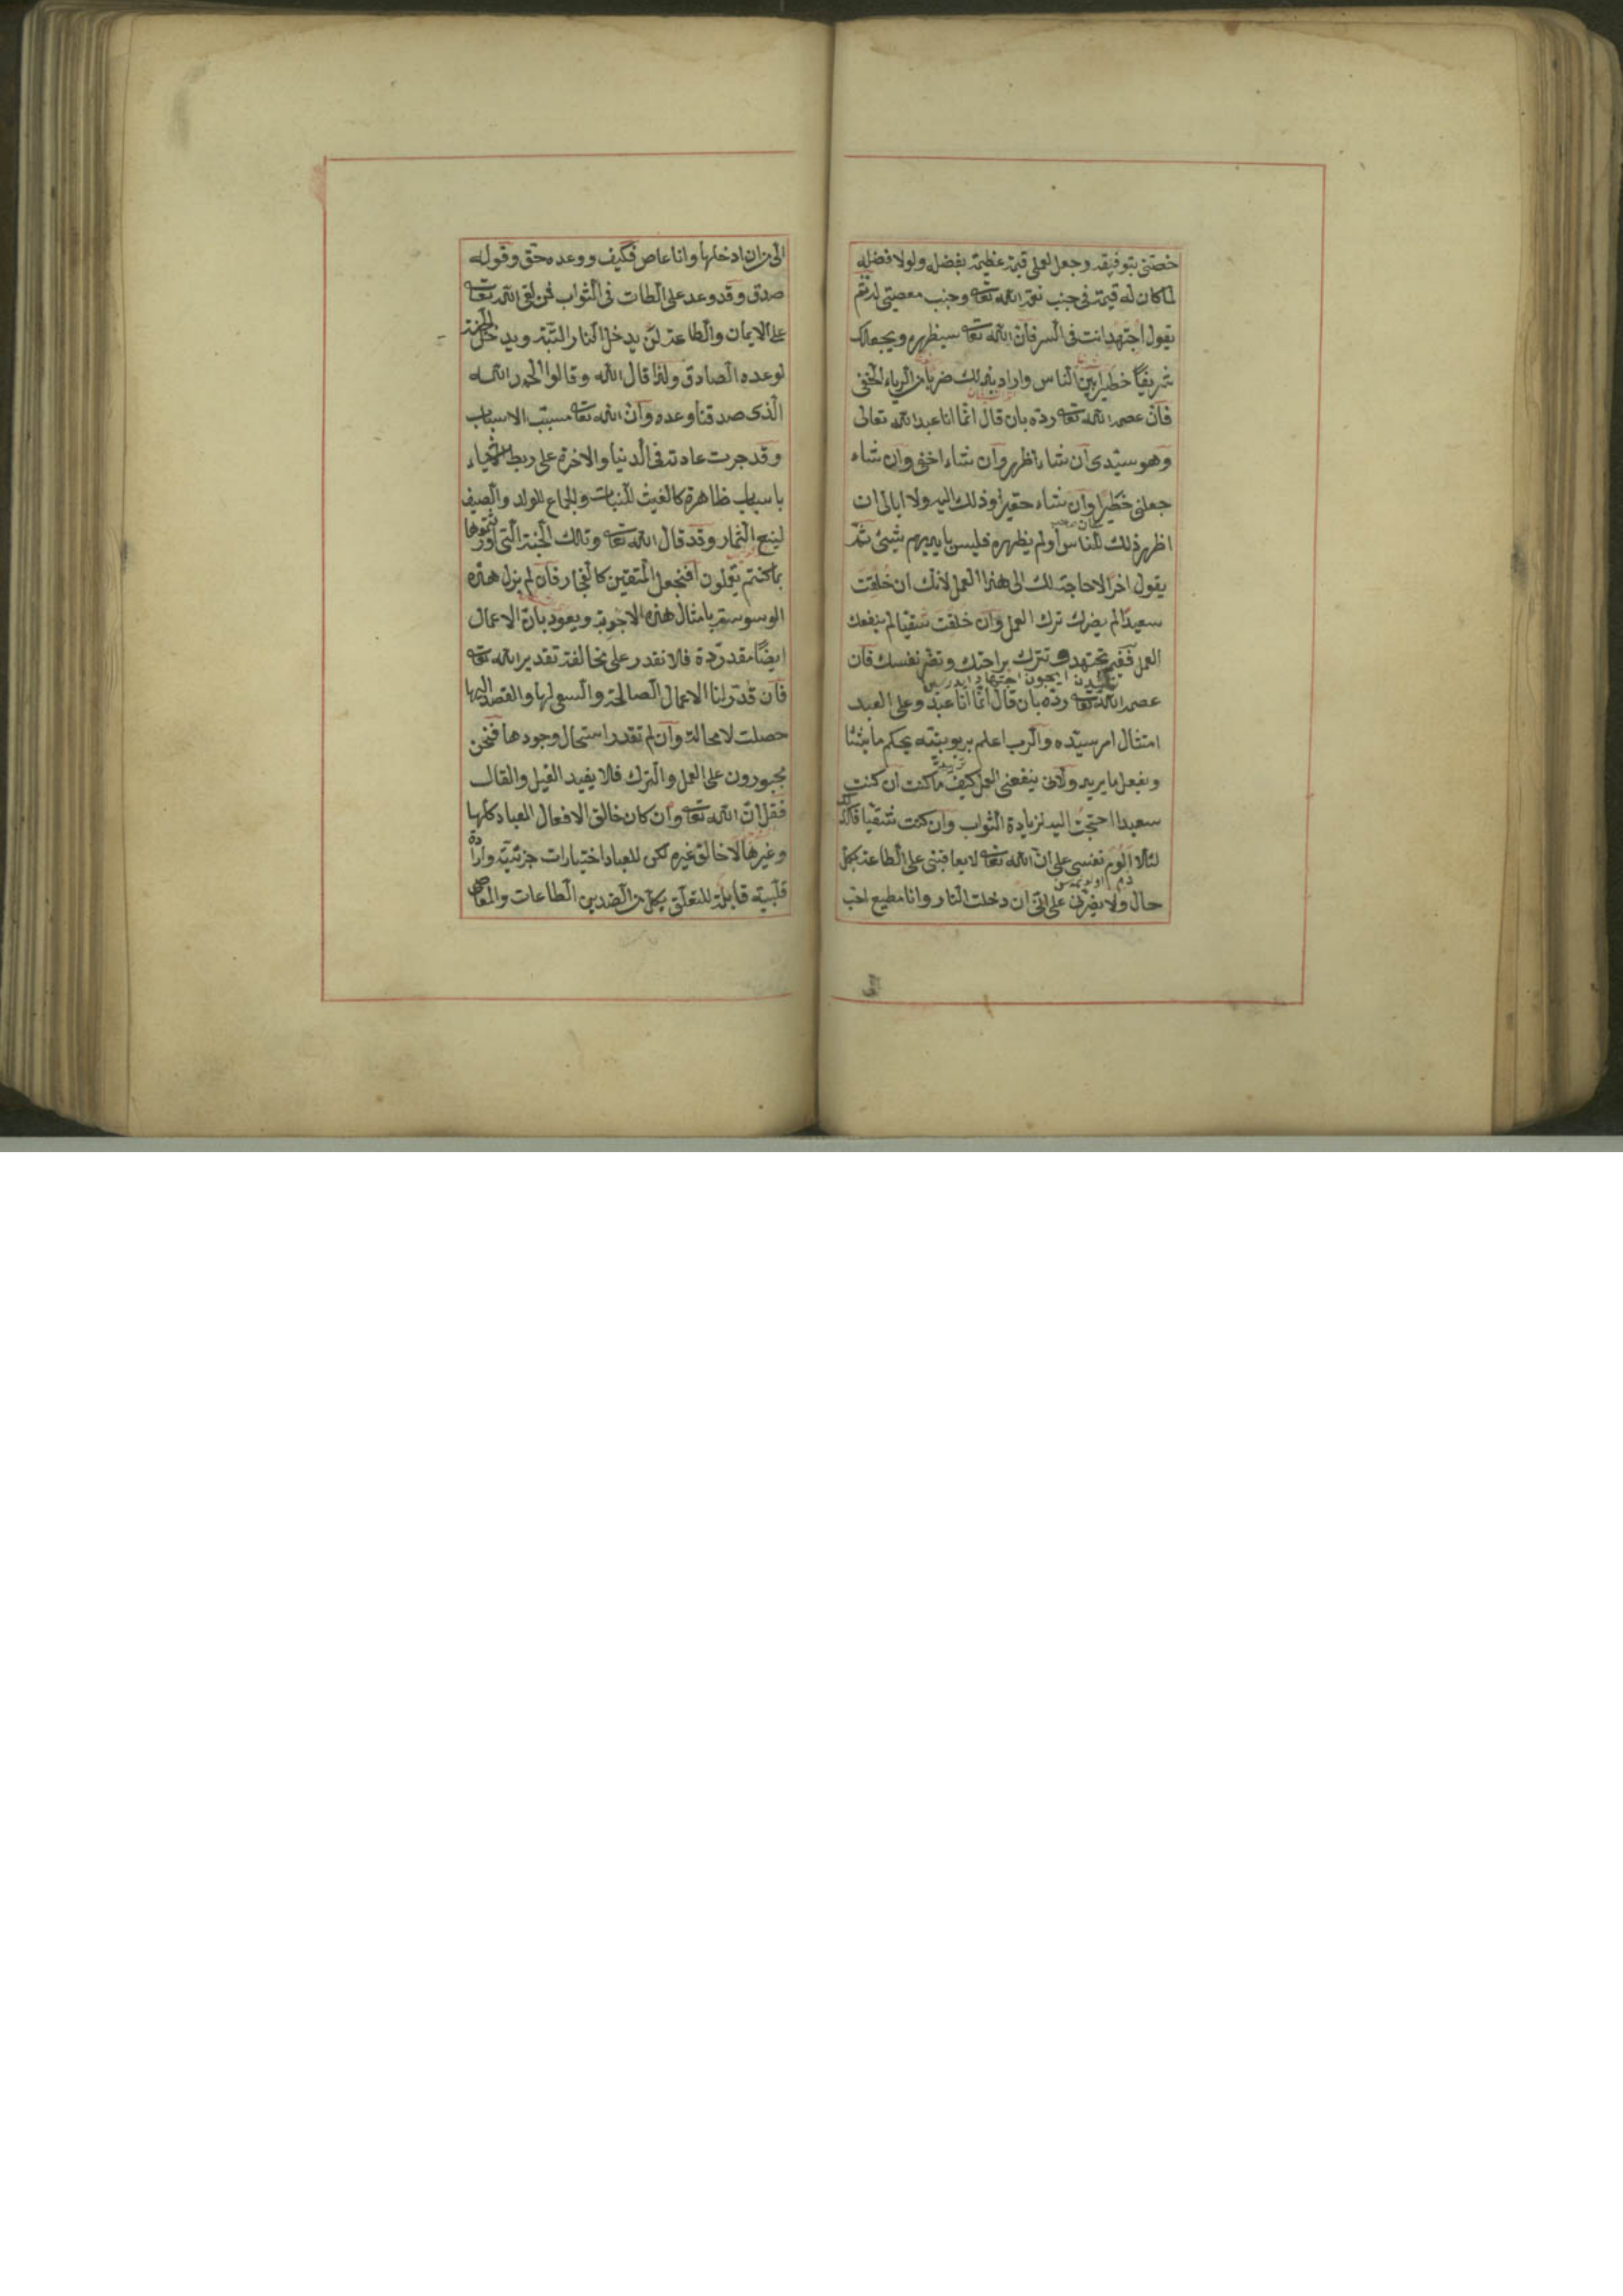 خصّنى بتوفيقه وجعل لعملى قيمة عظيمة بفضله ولولا فضله
لما كان له قيمة فى جنب نعمة الله تعا وجنب معصيتى له ثمّ
يقول اجتهد انت فى السر فانّ الله تعا سيظهره ويجعلك
شريفًا خطيرا بين الناس واراد بذلك ضربا من الرياء الخفىّ
فان عصمه الله تعا ردّه بان قال انّما انا عبد الله تعالى
وهو سيّدى ان شاء اظهر وان شاء اخفى وان شاء
جعلنى خطيرا وان شاء حقيرا وذلك اليه ولا ابالى ان
اظهر ذلك للناس او لم يظهره فليس بايديهم شيئ ثمّ
يقول اخرًا لا حاجة لك الى هذا العمل لانّك ان خلقت
سعيدًا لم يضرك ترك العمل وان خلقت شقيا لم ينفعك
العمل ففيم تجتهد وتترك براحتك وتضر نفسك فان
عصمه الله تعا ردّه بان قال انّما انا عبد وعلى العبد
امتثال امر سيّده والرب اعلم بربوبيته يحكم ما يشا
ويفعل ما يريد ولانى ينفعنى العمل كيف ما كنت ان كنت
سعيدا احتجت اليه لزيادة الثواب وان كنت شقيا فكذلك
لئلا الوم نفسى على ان الله تعا لا يعاقبنى على الطاعة بكل
حال ولا يضرّنى على انّى ان دخلت النار وانا مطيع احب
الىّ من ان ادخلها وانا عاص فكيف ووعده حق وقوله
صدق وقد وعد على الطات فى الثواب فمن لقى الله تعا
على الايمان والطاعة لن يدخل النار البتة ويدخل الجنة
لوعده الصادق ولذا قال الله وقالوا الحمد لله
الذى صدقنا وعده وان الله تعا مسبّب الاسباب
وقد جرت عادته فى الدنيا والاخرة على ربط الاشياء
باسباب ظاهرة كالغيث للنبات والجماع للولد والصيف
لينع الثمار وقد قال الله تعا وتلك الجنة التى اورثتموها
بما كنتم تعملون افنجعل المتقين كالفجار فان لم يزل هذه
الوسوسة بامثال هذه الاجوبة ويعود بان الاعمال
ايضًا مقدّرة فلا نقدر على مخالفة تقدير الله تعا
فان قدّر لنا الاعمال الصالحة والسعى لها والقصد اليها
حصلت لا محالة وان لم تقدر استحال وجودها فنحن
مجبورون على العمل والترك فلا يفيد القيل والقال
فقل انّ الله تعا وان كان خالق الافعال العباد كلها
وغيرها لا خالق غيره لكن للعباد اختيارات جزئيّة وارادة
قلبيّة قابلة للتعلّق بكل من الضدين الطاعات والمعاصى